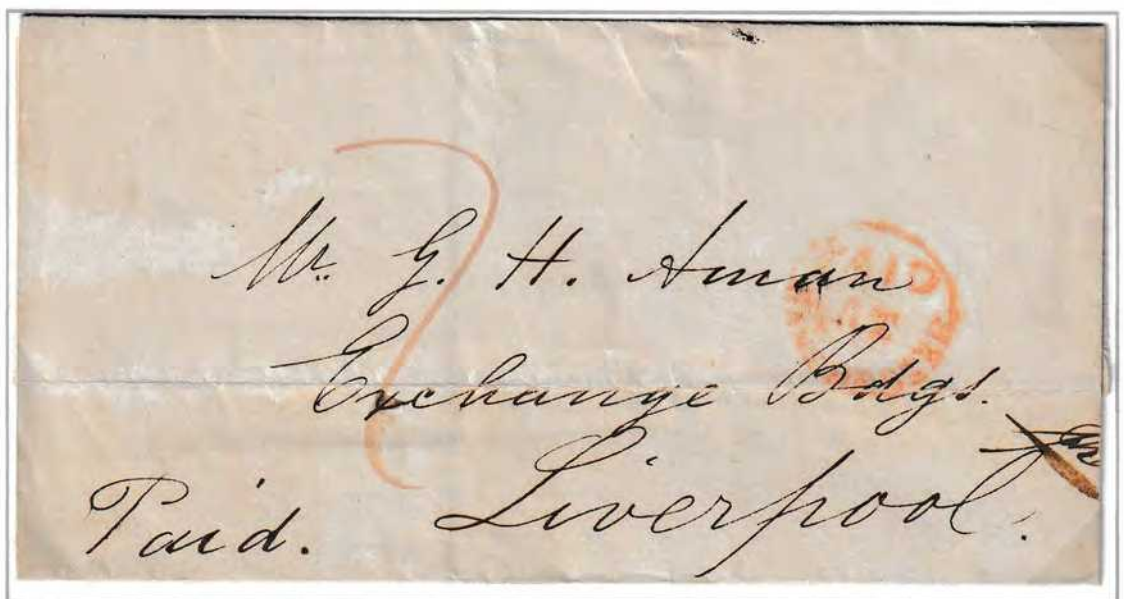 Mr. G. H. Aman
Exchange Bdgs.
Liverpool.
Paid.
PAID